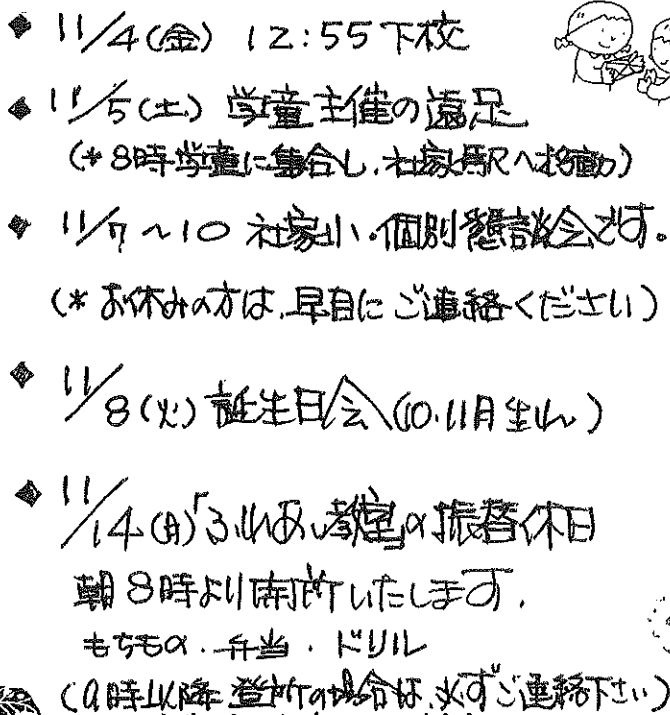 ◆ 11/4(金) 12:55下校
◆ 11/5(土) 学童主催の遠足
(*8時学童に集合し、社家駅へ移動)
◆ 11/7～10 社家小・個別懇談会です。
(*お休みの方は、早目にご連絡ください)
◆ 11/8(火) 誕生日会(10.11月生れ)
◆ 11/14(月)「ふれあい教室」の振替休日
朝8時より開所いたします。
もちもの・弁当・ドリル
(9時以降登所の場合は、必ずご連絡下さい)